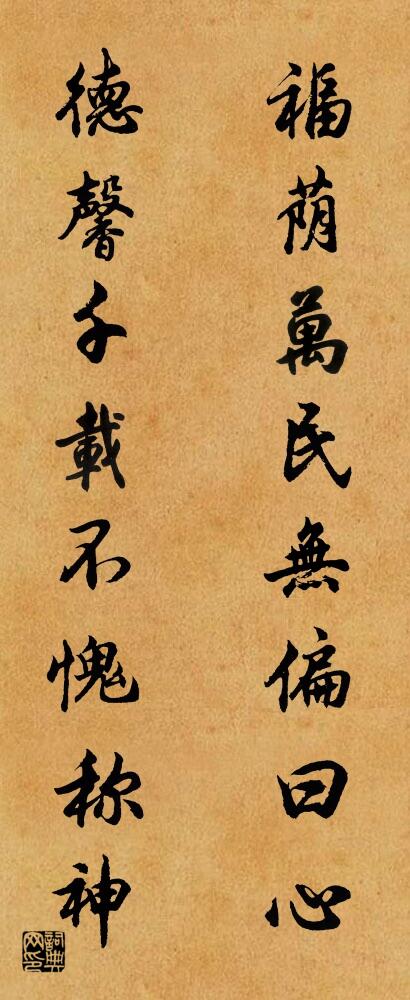 福荫萬民無偏曰心
德馨千載不愧称神
詞典网印